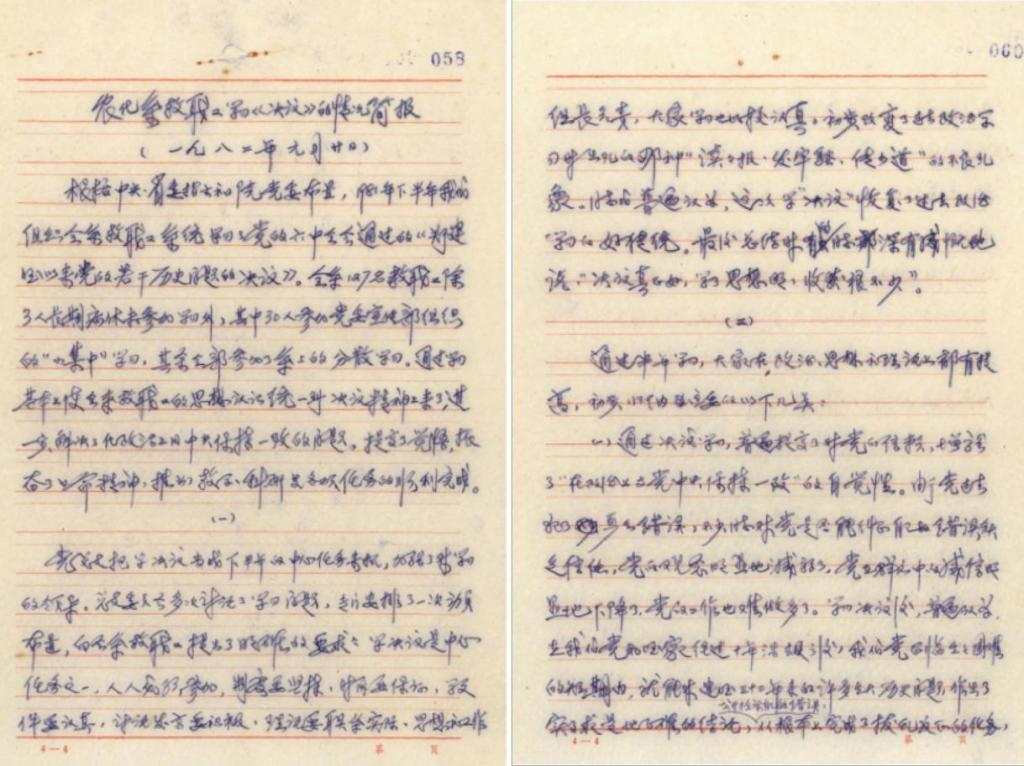 058
农化系教职工学习《决议》的情况简报
(一九八二年元月廿日)
根据中央、省委指示和院党委布置,去年下半年我们
组织全系教职工系统学习了党的六中全会通过的《为建
国以来党的若干历史问题的决议》。全系127名教职工除
了人长期病休未参加学习外,其中30人参加党委宣传部组织
的"集中"学习,其余全部参加了系上的分散学习。通过学习
基本上使全系教职工的思想认识统一到决议精神上来了,进
一步解决了在政治上同中央保持一致的问题。提高了觉悟,振
奋了革命精神,推动教学、科研与各项任务的顺利完成。
(一)
党总支把学决议当成下半年的中心任务来抓,加强了对学习
的领导。总支委员会多次讨论了学习问题,专门安排了一次动员
布置,向全系教职工提出了明确的要求:学决议是中心
任务之一,人人必须参加,制度要坚持,时间要保证,文
件要认真,讨论发言要积极,理论要联系实际、思想和工作
4—4 第 页
060
组长负责,大家学习也比较认真,初步改变了过去政治学
习中出现的那种"读书报、发牢骚、传小道"的不良现
象。同志们普遍认为,这次学"决议"恢复了过去政治
学习的好传统。最后总结时有的同志深有感触地
说:"决议真正好,学了思想明,收获很不少"。
(二)
通过半年学习,大家在政治、思想和理论上都有提
高,初步归纳主要有以下几点:
(1)通过决议学习,普遍提高了对党的信赖,增强
了"在政治上与党中央保持一致"的自觉性。由于党过去
犯了错误,不少同志对党是否能纠正自己的错误缺
乏信任,党的观念明显地减弱了,党在群众中的威信明
显地下降了,党的工作也难做多了。学习决议后,普遍认为,
在我们党和国家经过十年浩劫之后,我们党
的短期内,就能对建国三十二年来的许多重大历史问题,作出了
实事求是地正确的结论,从根本上完成了拨乱反正的任务,
4—4 第 页